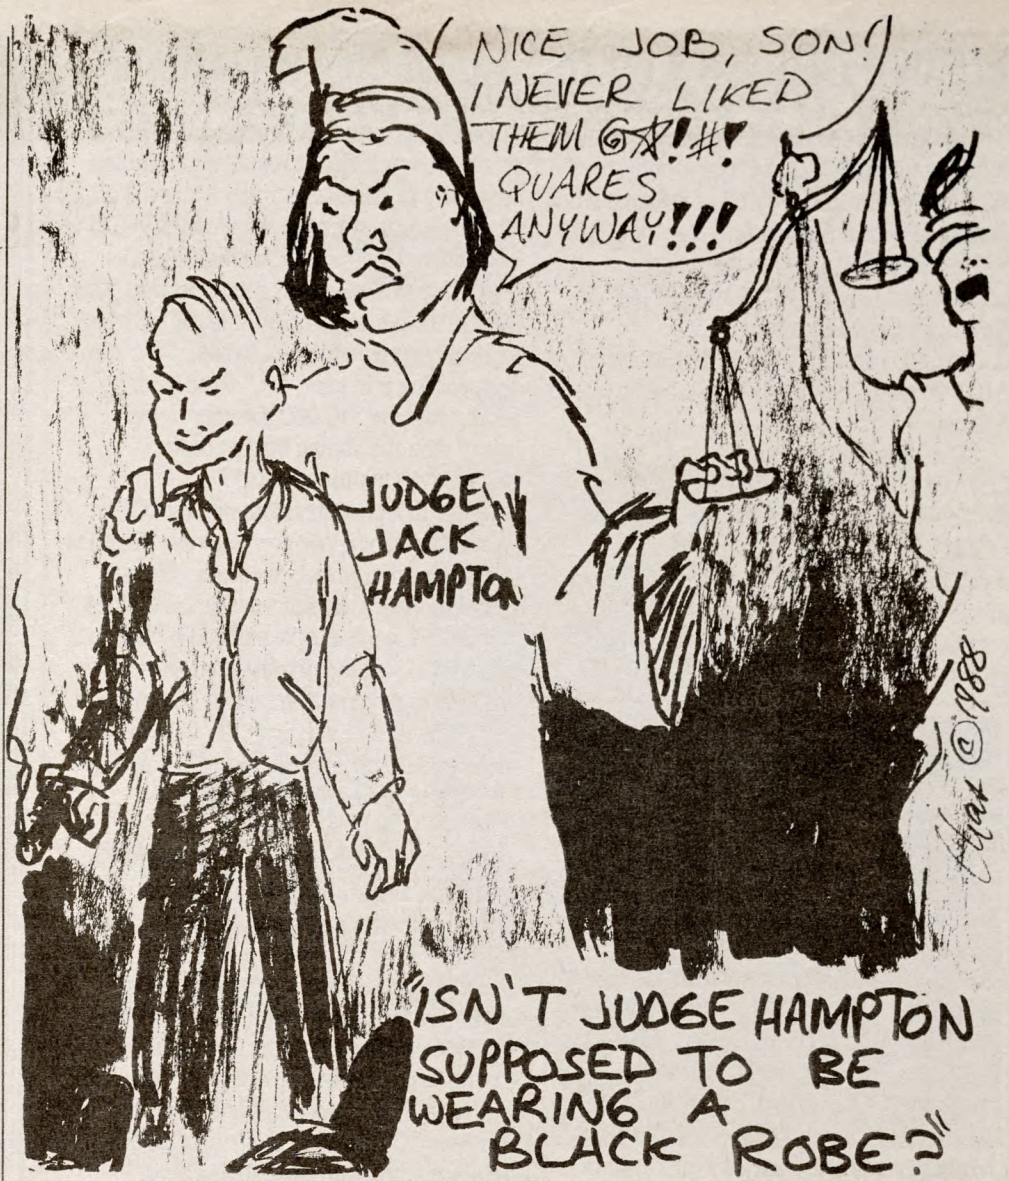 NICE JOB, SON!
I NEVER LIKED
THEM @☆!#!
QUARES
ANYWAY!!!
JUDGE
JACK
HAMPTON
© 1988
"ISN'T JUDGE HAMPTON
SUPPOSED TO BE
WEARING A
BLACK ROBE?"